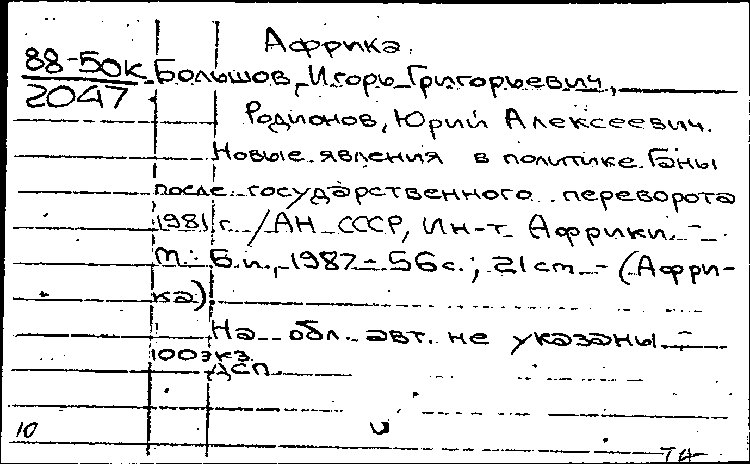 Африка.
88-50к Большов, Игорь Григорьевич,
2047
Родионов, Юрий Алексеевич.
Новые явления в политике Ганы
после государственного переворота
1981 г. /АН СССР, Ин-т Африки. -
М.: Б.и., 1987 - 56 с.; 21 см - (Афри-
ка)
На обл. авт. не указаны. -
100 экз.
ДСП
10